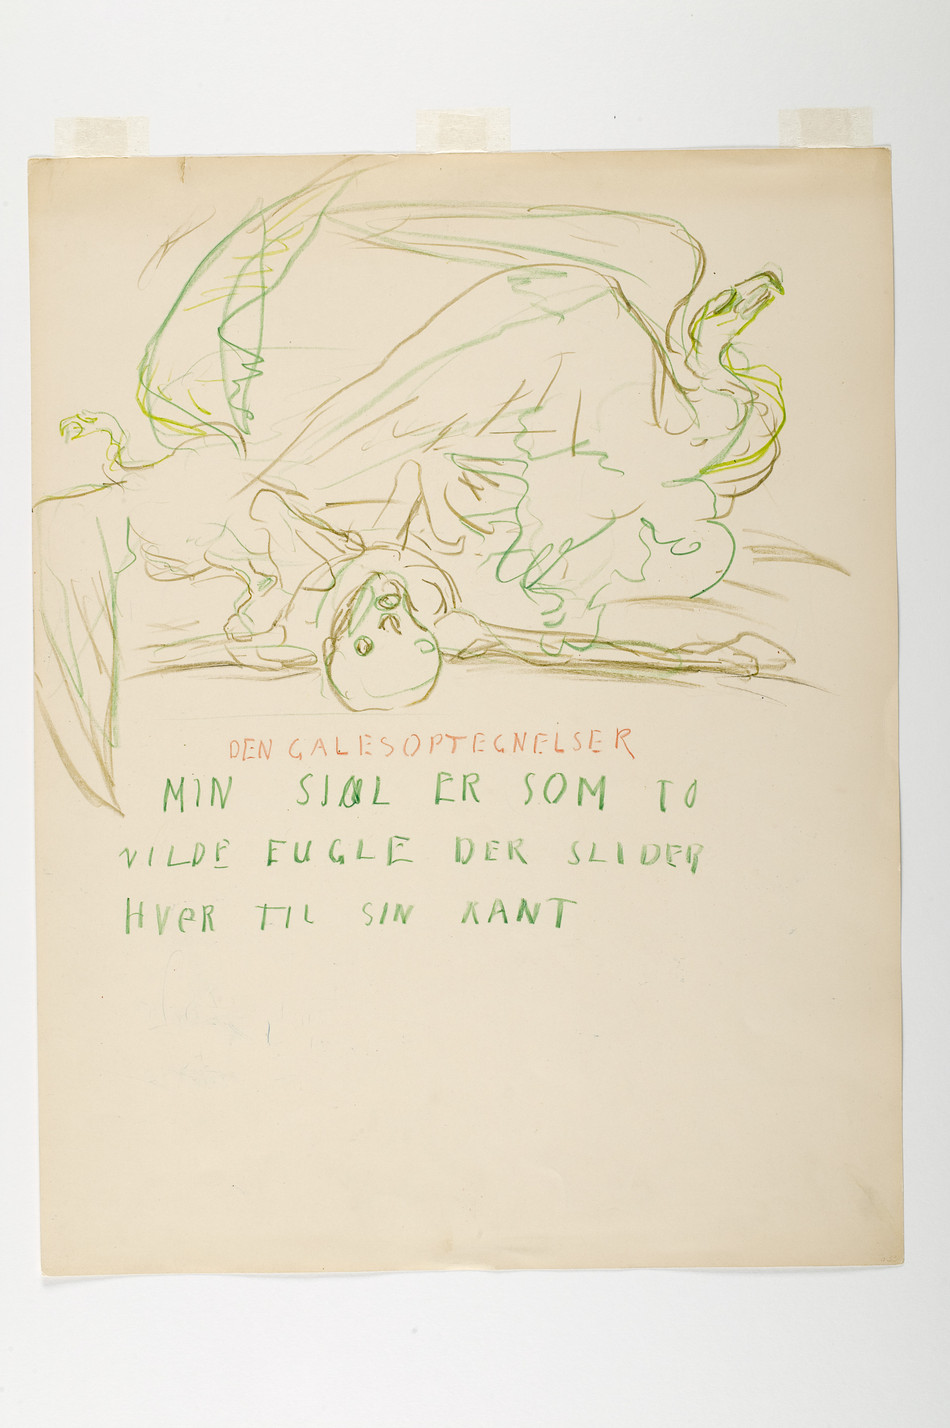 DEN GALES OPTEGNELSER
MIN SJØL ER SOM TO
VILDE FUGLE DER SLIDER
HVER TIL SIN KANT